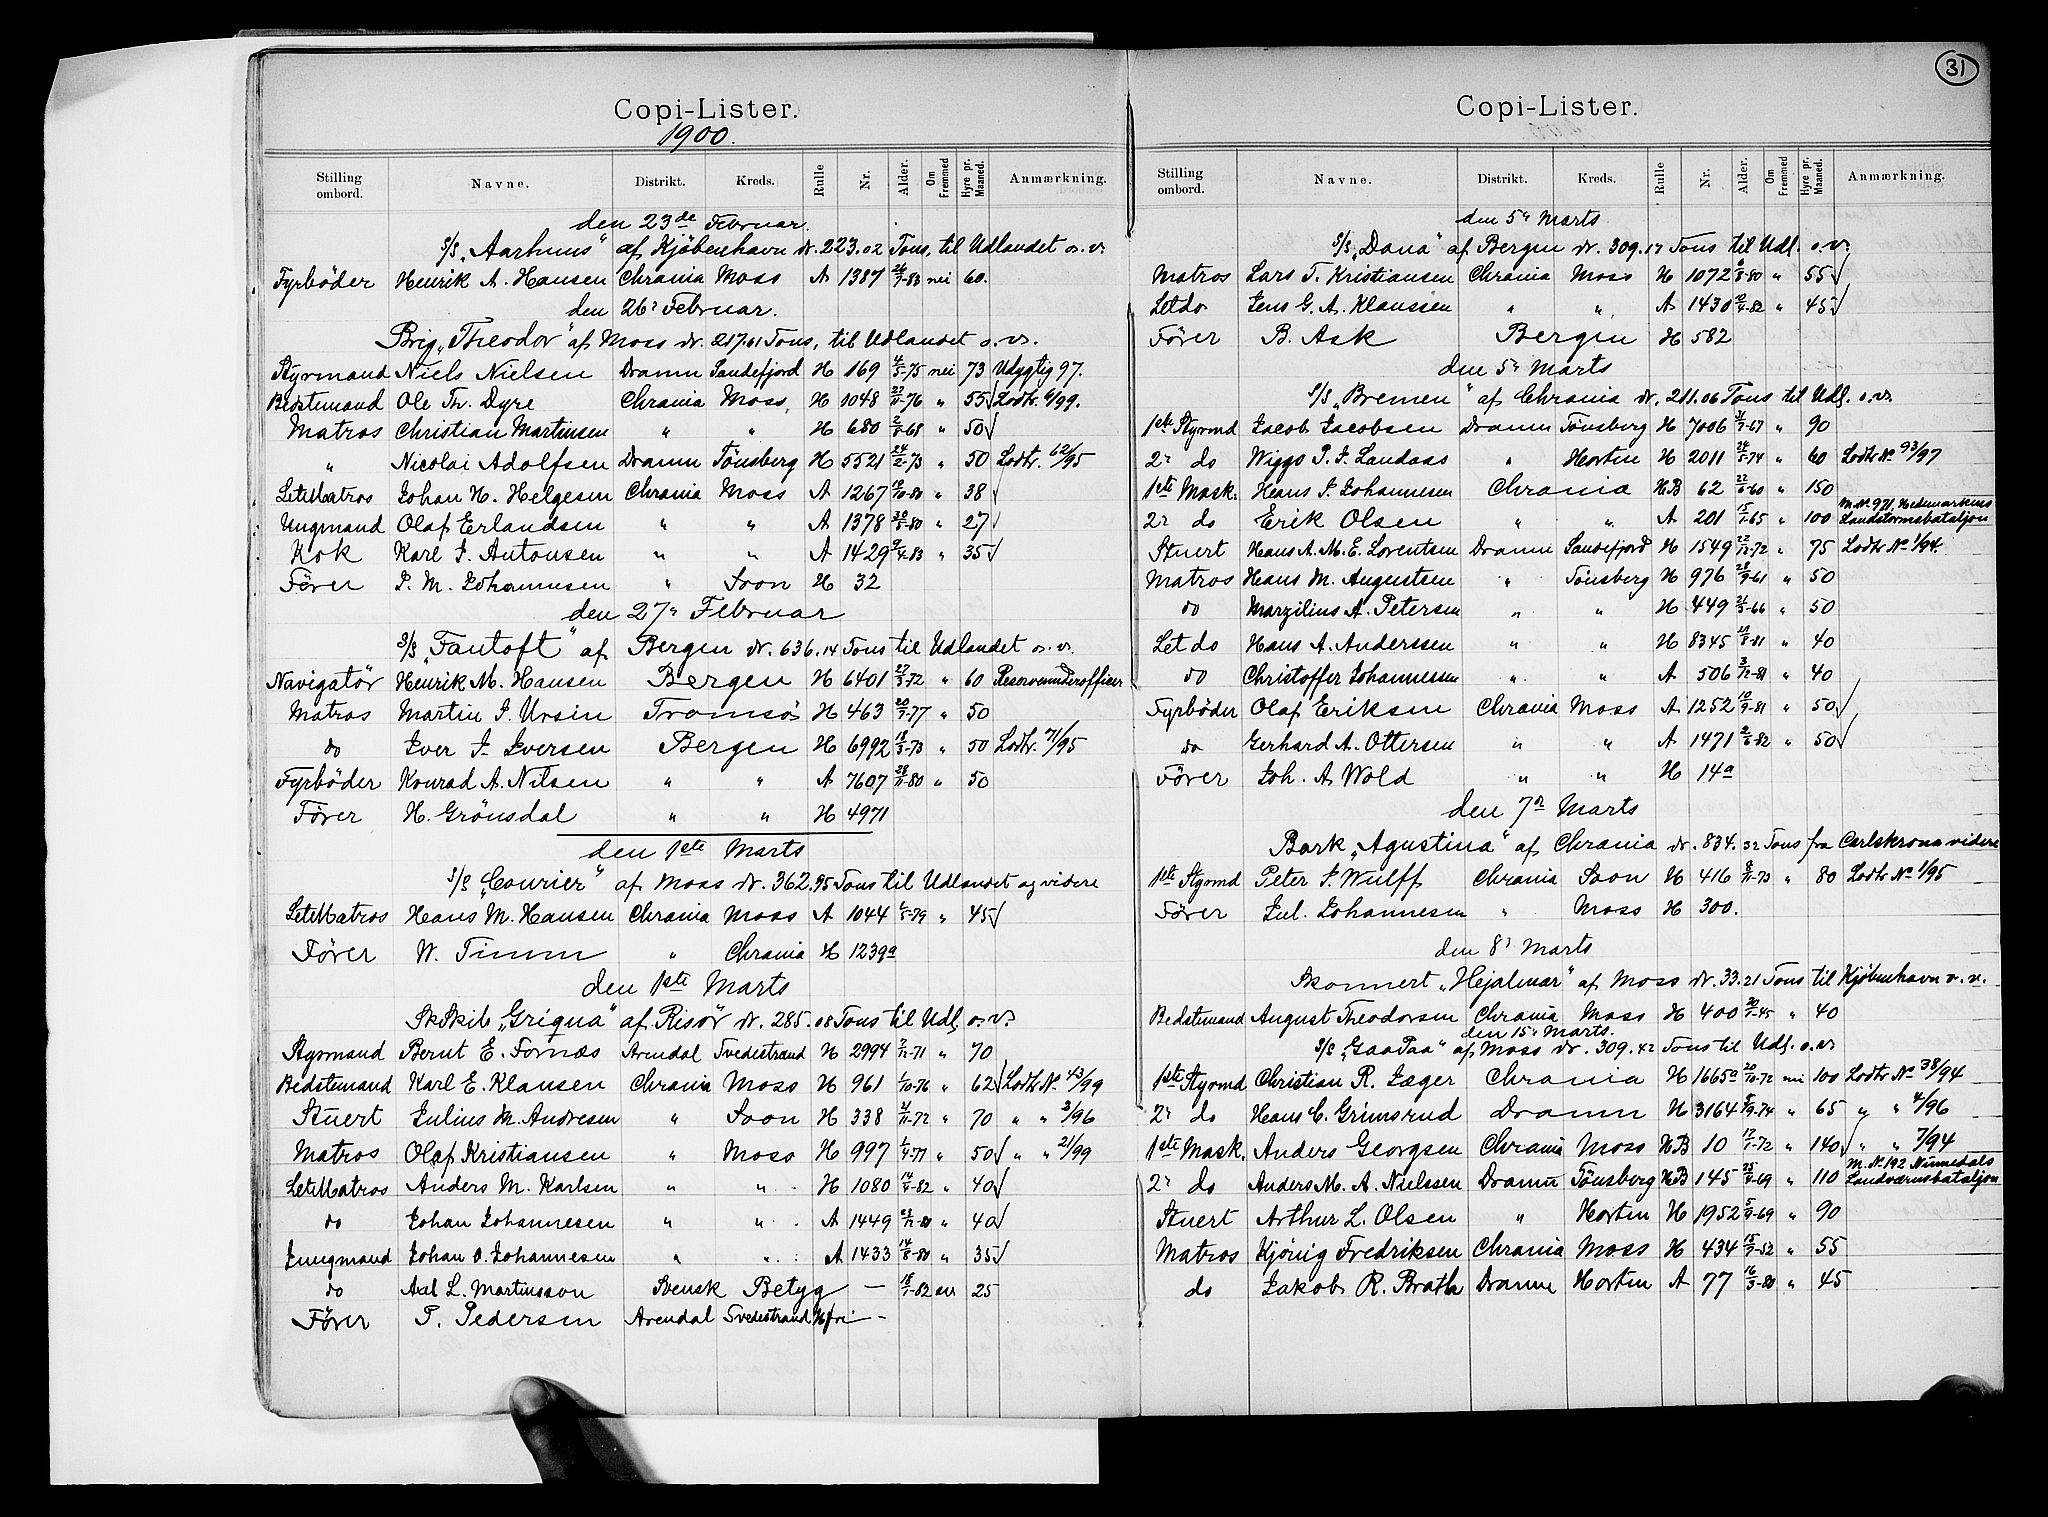 Copi-Lister.
1900.
Stilling ombord. Navne. Distrikt. Kreds. Rulle Nr. Alder. Om Fremmed Hyre pr. Maaned. Anmærkning.
den 23de Februar.
S/S „Aarhuus" af Kjöbenhavn dr. 223.02 Tons, til Udlandet o. v.
Fyrböder Henrik A. Hansen Chrania Moss A 1387 nei 60.
den 26' Februar.
Brig „Theodor" af Moss dr. 217.61 Tons, til Udlandet o. v.
Styrmand Niels Nielsen Dramn Sandefjord H 169 4/5-75 nei 73 Udygtig 97.
Bedstemand Ole Th. Dyre Chrania Moss, H 1048 22/11-76 " 55 Lodtr. 6/99.
Matros Christian Martinsen " " H 680 2/8-68 " 50
" Nicolai Adolfsen Dramn Tönsberg H 5521 24/2-73 " 50 Lodtr. 62/95
LetMatros Johan H. Helgesen Chrania Moss A 1267 18/10-80 " 38
Ungmand Olaf Erlandsen " " A 1378 30/5-80 " 27
Kok Karl J. Antonsen " " A 1429 9/4-83 " 35
Förer P. M. Johannesen " Soon H 32
den 27' Februar
S/S „Fantoft" af Bergen dr. 636.14 Tons til Udlandet o. v.
Navigatör Henrik M. Hansen Bergen H 6401 27/3-72 " 60 Reserveunderofficer
Matros Martin J. Ursin Tromsö H 463 20/1-77 " 50
do Iver J. Iversen Bergen H 6992 18/3-73 " 50 Lodtr. 71/95
Fyrböder Konrad A. Nilsen " " A 7607 28/11-80 " 50
Förer H. Grönsdal " " H 4971
den 1ste Marts
S/S „Courier" af Moss dr. 362.95 Tons til Udlandet og videre
LetMatros Hans M. Hansen Chrania Moss A 1044 1/5-79 " 45
Förer W. Timm " Chrania H 1239a
den 1ste Marts
SkSkib „Griqua" af Risör dr. 285.08 Tons til Udl. o. v.
Styrmand Bernt E. Fornæs Arendal Tvedestrand H 2994 7/12-71 " 70
Bedstemand Karl E. Klausen Chrania Moss H 961 1/10-76 " 62 Lodtr No. 43/99
Stuert Julius M. Andresen " Soon H 338 21/11-72 " 70 " " 3/96
Matros Olaf Kristiansen " Moss H 997 1/4-77 " 50 " " 21/99
LetMatros Anders M. Karlsen " " H 1080 14/4-82 " 40
do Johan Johannesen " " A 1449 " 40
Jungmand Johan O. Johannesen " " A 1433 14/8-80 " 35
do Axel L. Martinsson Svensk Betyg — 18/1-82 en 25
Förer T. Pedersen Arendal Tvedestrand H fri —
31
Copi-Lister.
Stilling ombord. Navne. Distrikt. Kreds. Rulle Nr. Alder. Om Fremmed Hyre pr. Maaned. Anmærkning.
den 5' Marts
S/S „Dana" af Bergen dr. 309.17 Tons til Udl. o. v.
Matros Lars T. Kristiansen Chrania Moss H 1072 " 55
Let do Jens G. A. Klaussen " " A 1430 " 45
Förer B. Ask Bergen H 582
den 5' Marts
S/S „Bremen" af Chrania dr. 211.06 Tons til Udl. o. v.
1ste Styrmd Jacob Jacobsen Dramn Tönsberg H 7006 " 90
2' do Wiggo P. J. Landaas " Horten H 2011 24/5-74 " 60 Lodtr No. 93/97
1ste Mask. Hans J. Johannesen Chrania HB 62 22/6-60 " 150
2' do Erik Olsen " " A 201 15/1-65 " 100 M. No. 971 Hedemarkens Landstormsbataljon
Stuert Hans A. M. E. Lorentsen Dramn Sandefjord H 1549 22/12-72 " 75 Lodtr No. 1/94.
Matros Hans M. Augustsen " Tönsberg H 976 28/9-61 " 50
do Marzilius A. Petersen " " H 449 21/3-66 " 50
Let do Hans A. Anderssen " " H 8345 27/8-81 " 40
do Christoffer Johannessen " " A 506 3/12-81 " 40
Fyrböder Olaf Eriksen Chrania Moss A 1252 10/9-81 " 50
do Gerhard A. Ottersen " " A 1471 2/6-82 " 50
Förer Joh. A Wold " " H 14a
den 7de Marts
Bark „Agustina" af Chrania dr. 834.32 Tons fra Carlskrona videre
1ste Styrmd Peter J. Wulff Chrania Soon H 416 8/11-73 " 80 Lodtr No. 1/95
Förer Jul. Johannesen " Moss H 300.
den 8' Marts
Skonnert „Hejalmar" af Moss dr. 33.21 Tons til Kjöbenhavn o. v.
Bedstemand August Theodorsen Chrania Moss H 400 20/1-45 " 40
den 15' Marts.
S/S „GaaPaa" af Moss dr. 309.42 Tons til Udl. o. v
1ste Styrmd Christian R. Jæger Chrania H 1665a 20/10-72 nei 100 Lodtr No. 38/94
2' do Hans C. Grimsrud Dramn H 3164 8/9-74 " 65 " " 4/96
1ste Mask. Anders Georgsen Chrania Moss HB 10 17/1-72 " 140 " " 7/94
2' do Anders M. A. Nielssen Dramn Tönsberg HB 145 " 110 M. No. 192 Numedals Landværnsbataljon
Stuert Arthur L. Olsen " Horten H 1952 5/9-69 " 90
Matros Kjönig Fredriksen Chrania Moss H 434 " 55
do Jakob R. Brath Dramn Horten A 77 16/3-80 " 45